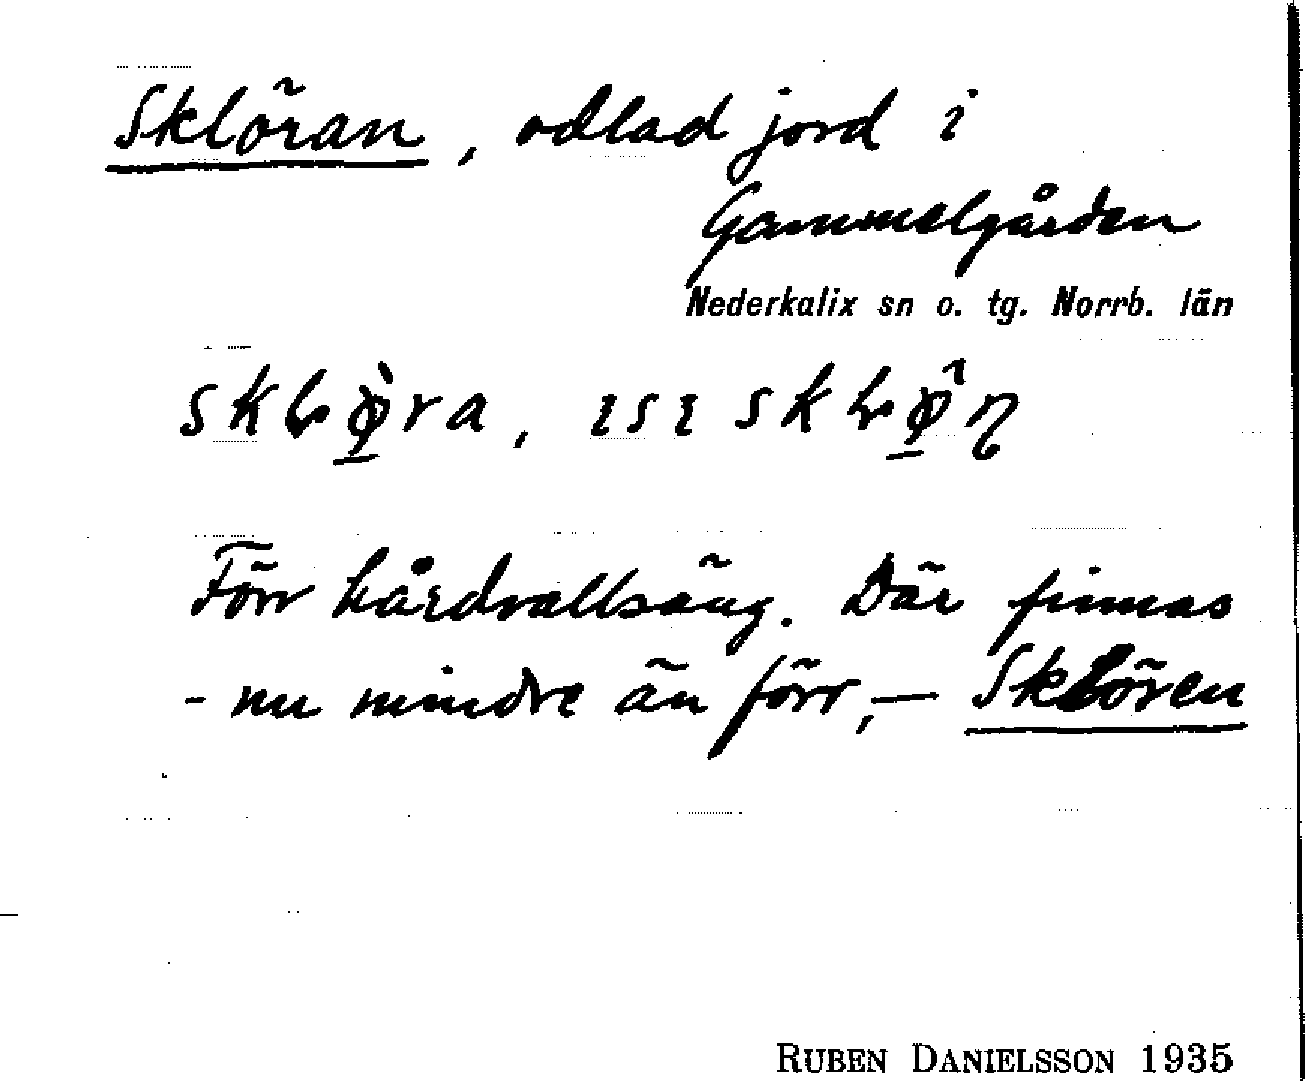 Sklöran, odlad jord i
Gammelgården
Nederkalix sn o. tg. Norrb. län
Förr hårdvallsäng. Där finnas
- nu mindre än förr, — Sklören
RUBEN DANIELSSON 1935